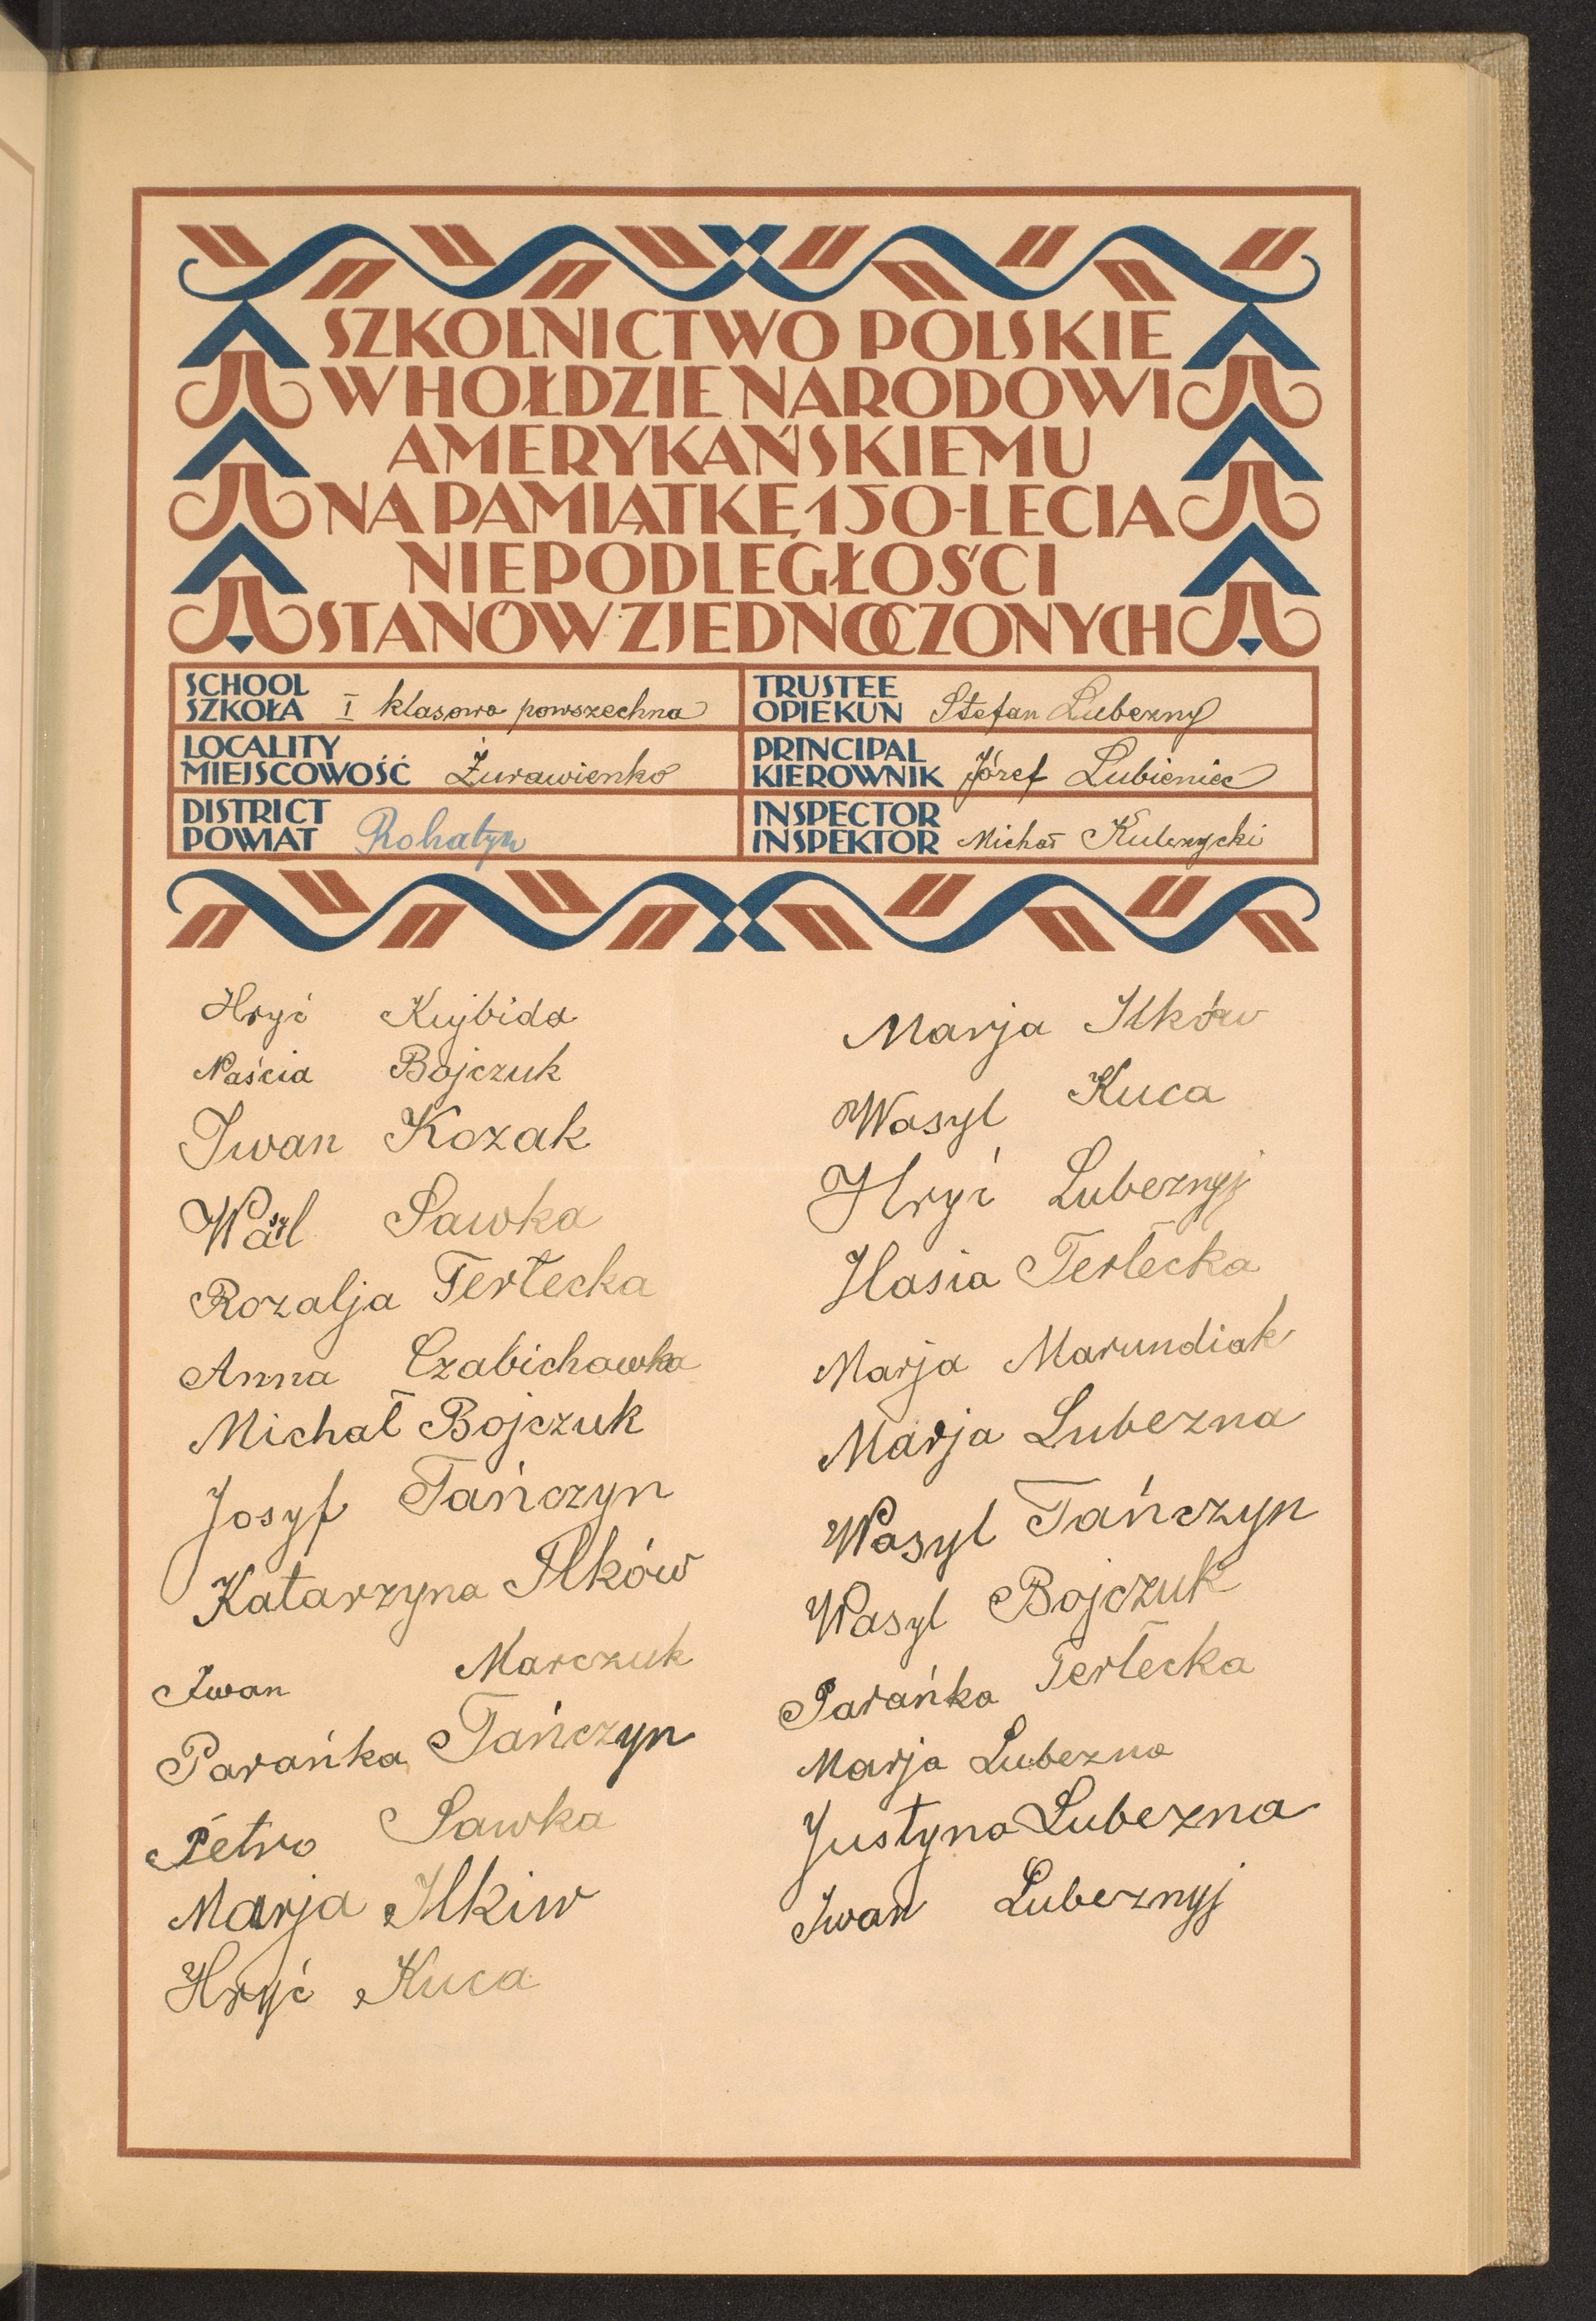 SZKOLNICTWO POLSKIE
W HOŁDZIE NARODOWI
AMERYKAŃSKIEMU
NA PAMIĄTKĘ 150-LECIA
NIEPODLEGŁOŚCI
STANÓW ZJEDNOCZONYCH
SCHOOL
SZKOŁA I klasowa powszechna
LOCALITY
MIEJSCOWOŚĆ Żurawienko
DISTRICT
POWIAT Rohatyn
TRUSTEE
OPIEKUN Stefan Lubezny
PRINCIPAL
KIEROWNIK Józef Lubieniec
INSPECTOR
INSPEKTOR Michał Kulczycki
Hryć Kujbida
Naścia Bojczuk
Iwan Kozak
Wasyl Sawka
Rozalja Terłecka
Anna Czabichowka
Michał Bojczuk
Josyf Tańczyn
Katarzyna Ilków
Iwan Marczuk
Parańka Tańczyn
Petro Sawka
Marja Ilkiw
Hryć Kuca
Marja Ilków
Wasyl Kuca
Hryć Lubeznyj
Hasia Terłecka
Marja Marundiak
Marja Lubezna
Wasyl Tańczyn
Wasyl Bojczuk
Parańka Terłecka
Marja Lubezna
Justyna Lubezna
Iwan Lubeznyj